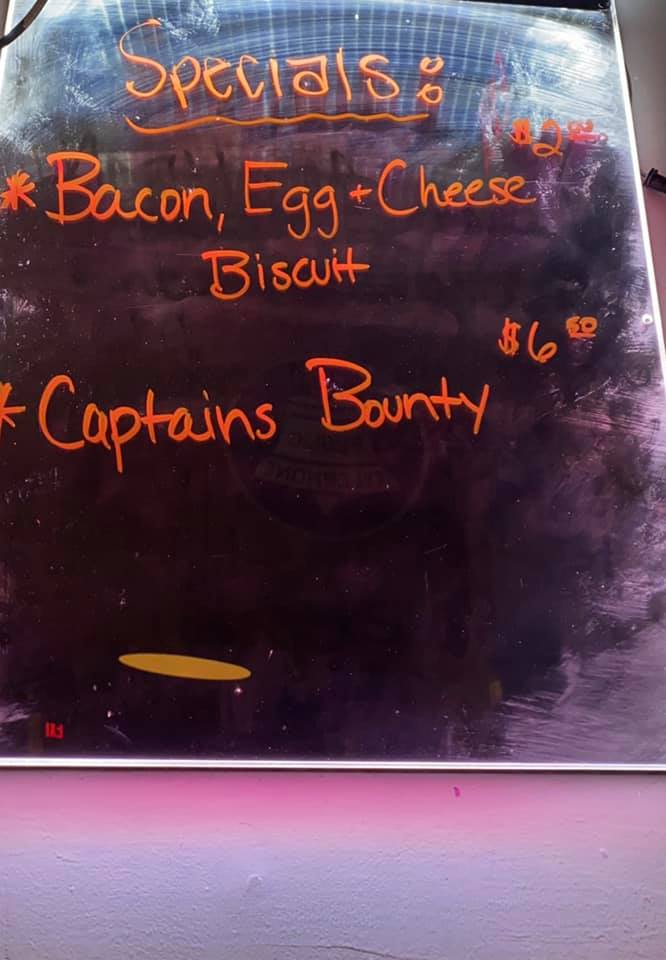 Specials:
$2
* Bacon, Egg + Cheese
Biscuit
$6 50
* Captains Bounty